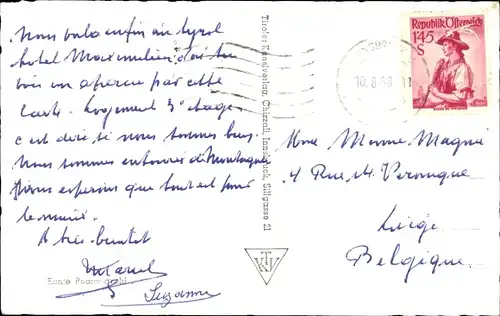 Nous voilà enfin au tyrol
hotel Maximilien d'où tu
vois un aperçu par cette
carte. Logement 3e étage
c'est dire si nous sommes bien.
Nous sommes entourés de Montagnes
Nous espérons que tout est pour
le mieux.
A très bientôt
Marcel
Suzanne
Echte Photographie
Tiroler Kunstverlag, Chizzali, Innsbruck, Sillgasse 21
TKV
10. 8. 58. 11
Republik Österreich
145
S
Mme Magnée
4 Rue St. Veronique
Liège
Belgique.